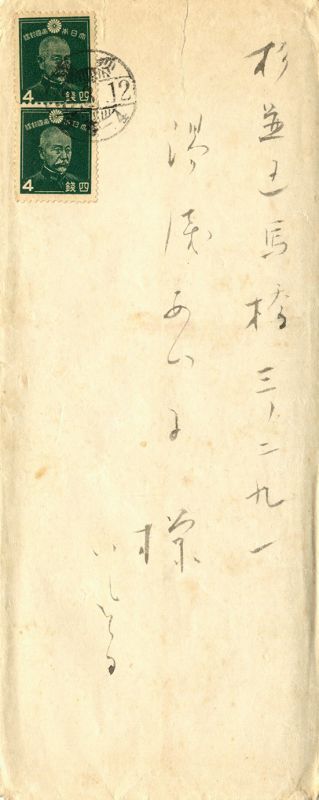 杉並区馬橋三ノ二九一
湯浅あい子様
大日本帝國郵便
4 四錢
12
大日本帝國郵便
4 四錢